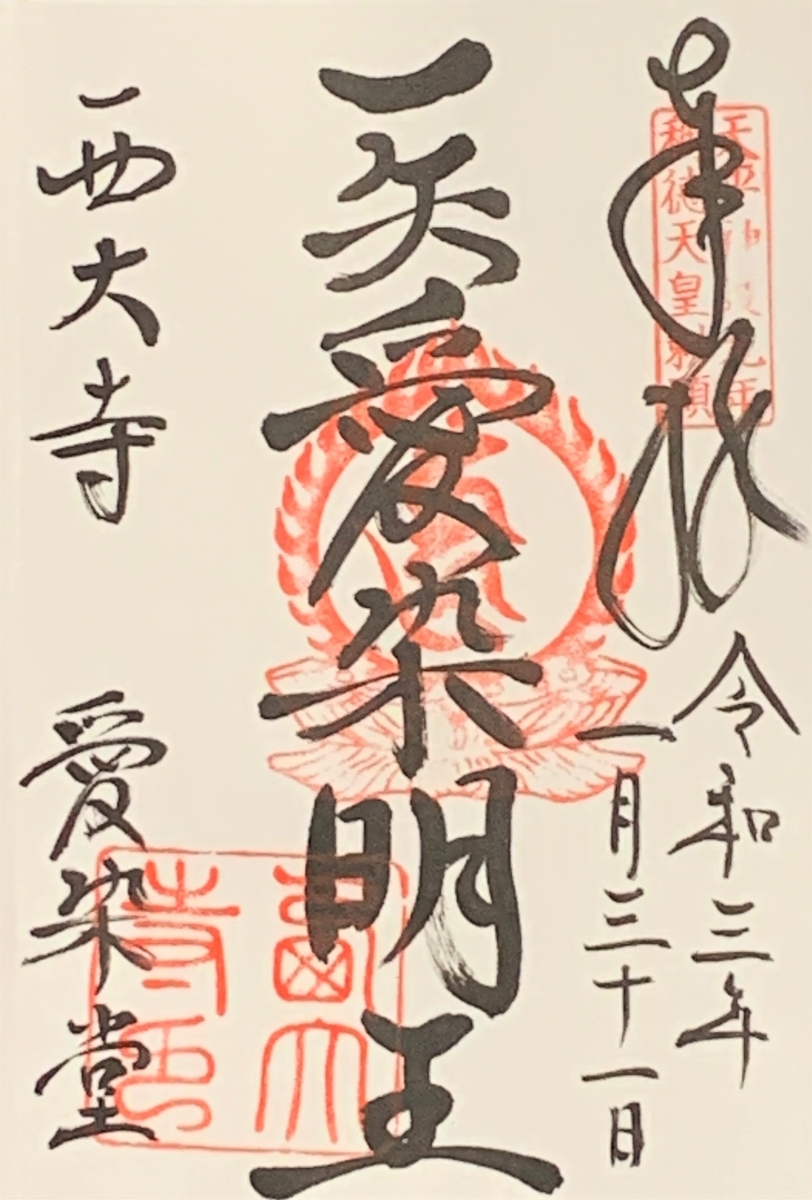 奉拝
天平神護元年
称徳天皇勅願
令和三年
一月三十一日
一矢愛染明王
西大寺　愛染堂
西大
寺印